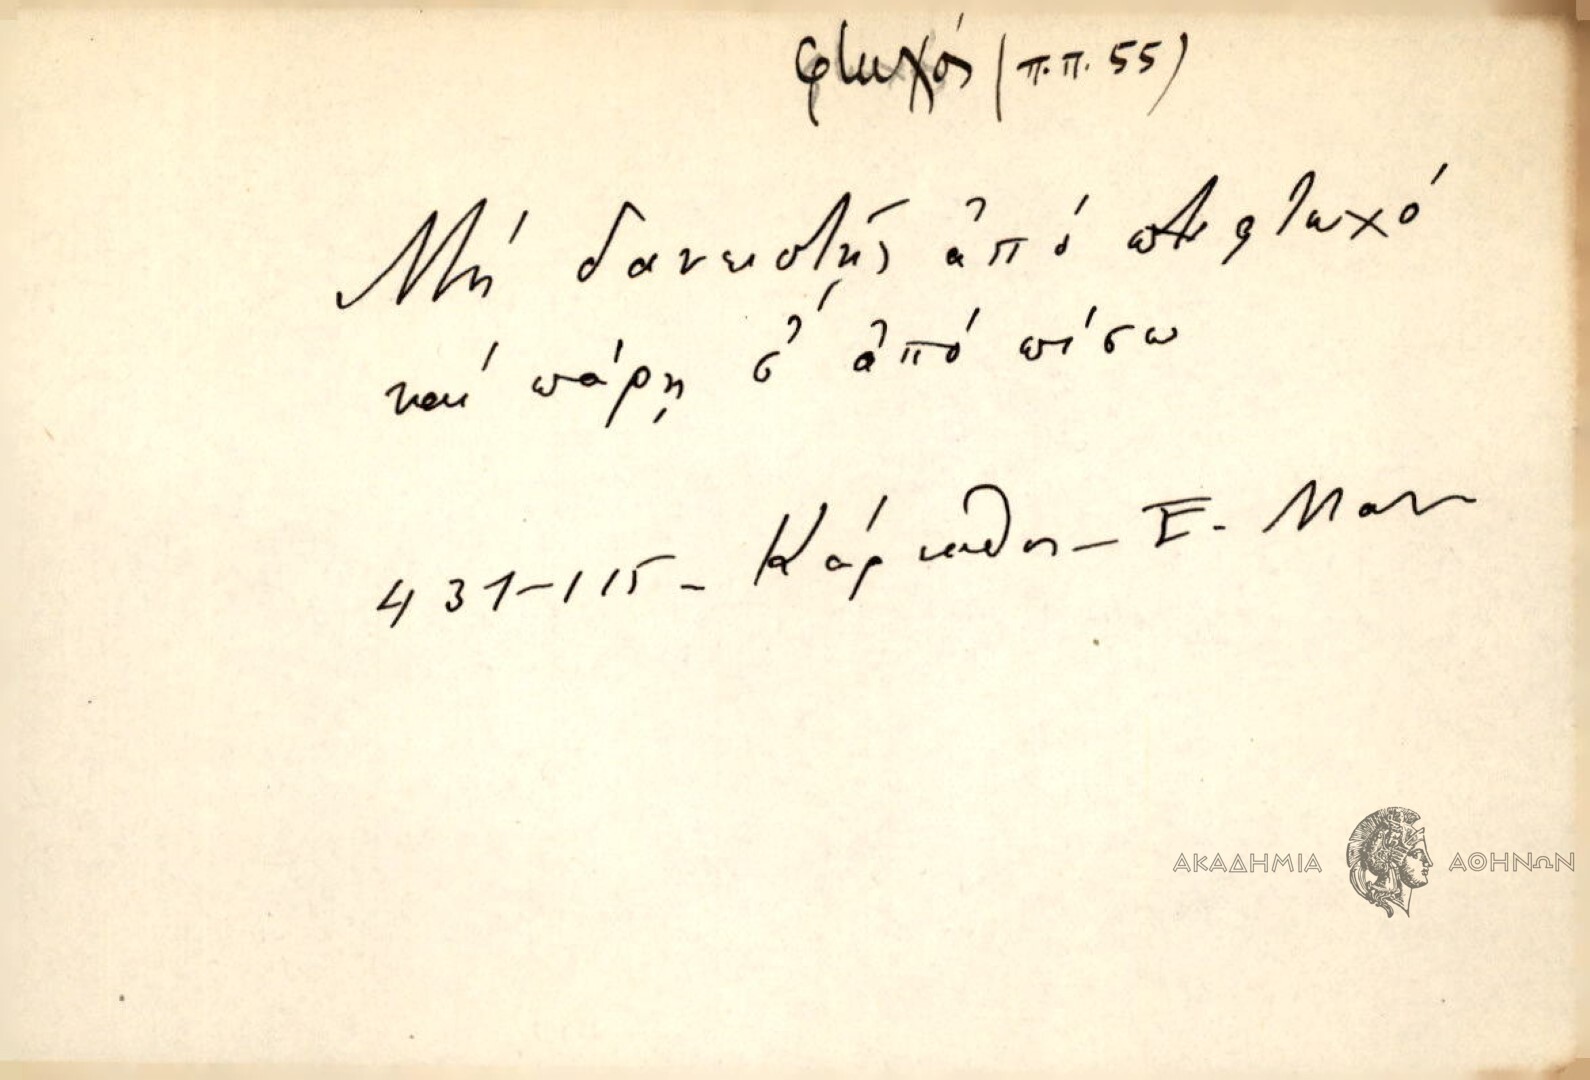 φτωχός (π.π. 55)
Μή δανειστῇς ἀπό φτωχό
καί πάρῃ σ' ἀπό πίσω
431-115- Κάρπαθος - Ε. Μαν
ΑΚΑΔΗΜΙΑ ΑΘΗΝΩΝ